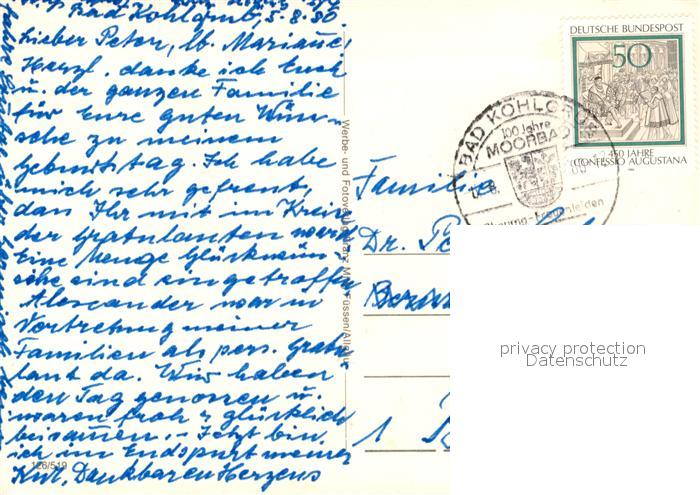 Bad Kohlgrub, 5.8.80.
Lieber Peter, lb. Marianne,
Herzl. danke ich Euch
u. der ganzen Familie
für Eure guten Wün-
sche zu meinem
Geburtstag. Ich habe
mich sehr gefreut,
dan Ihr mit im Kreis
der Gratulanten ward
Eine Menge Glückwün-
sche sind eingetroffen
Alexander war in
Vertretung meiner
Familien als pers. Gratu-
lant da. Wir haben
den Tag genossen u.
waren froh & glücklich
beisamen. - Jetzt bin
ich im Endspurt meiner
Kur, Dankbaren Herzens
126/519
Werbe- und Fotoverlag Franz Milz Füssen/Allgäu
DEUTSCHE BUNDESPOST
50
450 JAHRE
CONFESSIO AUGUSTANA
BAD KOHLGRUB
100 Jahre
MOORBAD
Familie
Dr.
1
privacy protection
Datenschutz